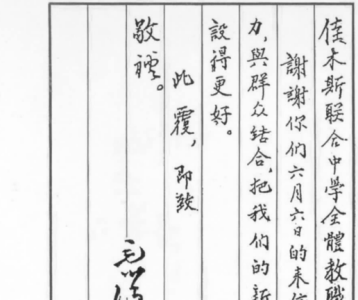 佳木斯联合中學全體教職
謝謝你们六月六日的来信
力，與群众结合，把我们的新
設得更好。
此覆，即致
敬禮。
毛